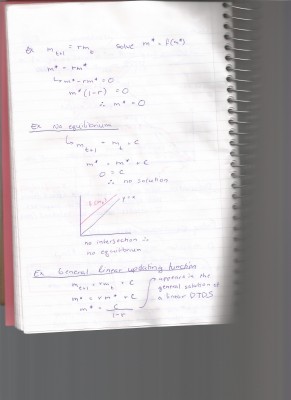 Ex m_{t+1} = rm_t solve m* = f(m*)
m* = rm*
↳ m* - rm* = 0
m*(1-r) = 0
∴ m* = 0
Ex No equilibrium
↳ m_{t+1} = m_t + c
m* = m* + c
0 = c
∴ no solution
y=x
no intersection ∴
no equilibrium
Ex General linear updating function
m_{t+1} = rm_t + c
m* = rm* + c
m* = c/(1-r)
appears in the
general solution of
a linear DTDS